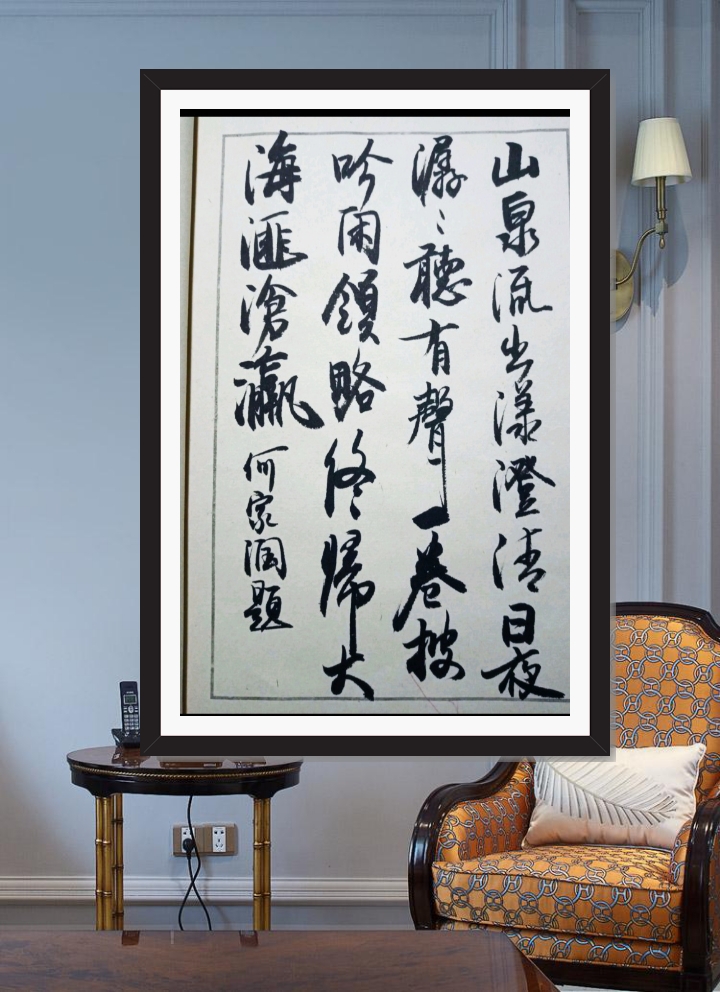 山泉流出漾澄清日夜
潺〻聽有聲一卷披
吟閑領略終歸大
海匯滄瀛 何家題